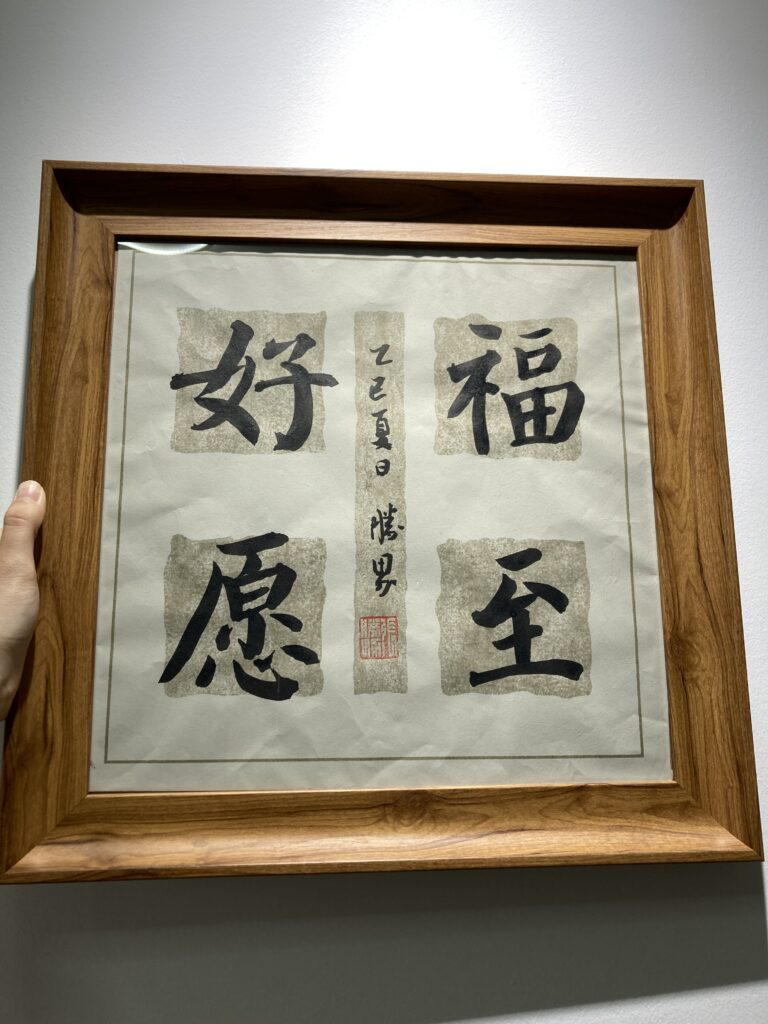 福至
好愿
乙巳夏日 勝男